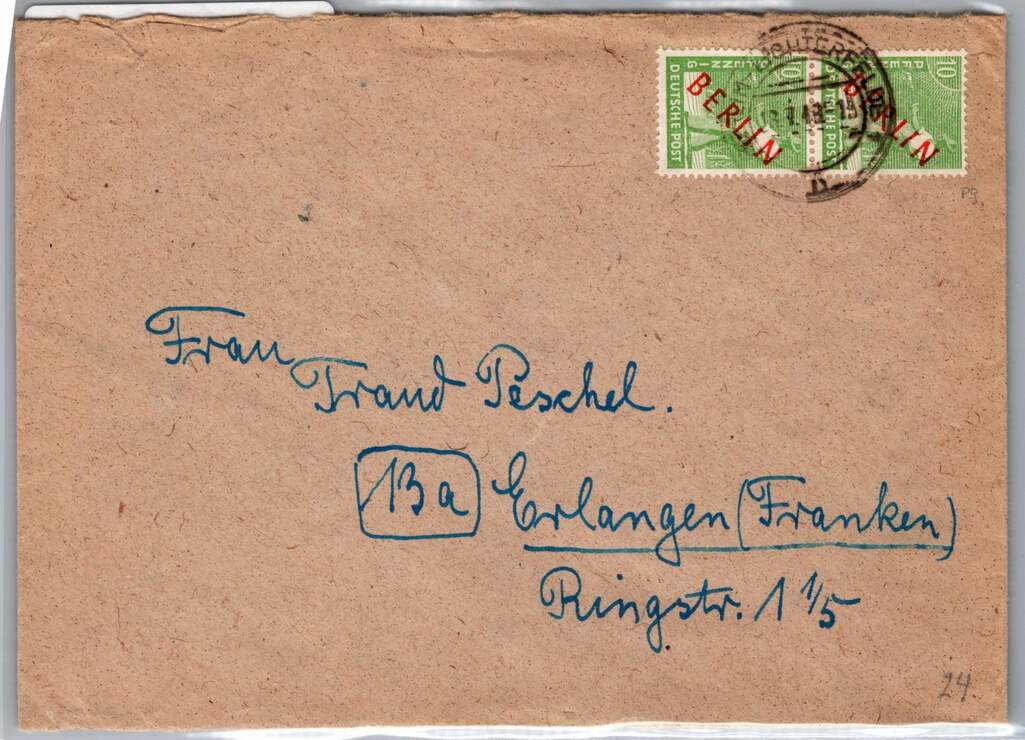 10 PFENNIG
DEUTSCHE POST
BERLIN
10 PFENNIG
DEUTSCHE POST
BERLIN
PR.
Frau
Traud Peschel.
13a Erlangen (Franken)
Ringstr. 1 1/5
24.